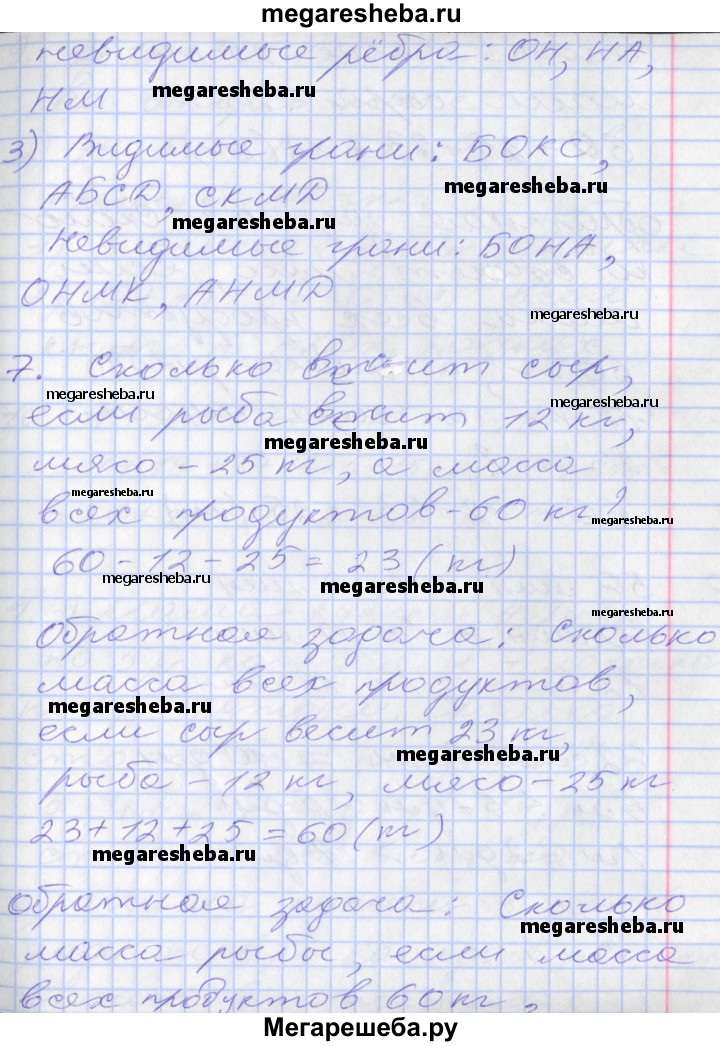 megaresheba.ru
невидимые рёбра: ОН, НА,
НМ
megaresheba.ru
3) Видимые грани: БОКС,
megaresheba.ru
АБСD, СКМD
megaresheba.ru
Невидимые грани: БОНА,
ОНМК, АНМD
megaresheba.ru
7. Сколько весит сыр,
megaresheba.ru
megaresheba.ru
если рыба весит 12 кг,
megaresheba.ru
мясо - 25 кг, а масса
megaresheba.ru
всех продуктов - 60 кг?
megaresheba.ru
60 - 12 - 25 = 23 (кг)
megaresheba.ru
megaresheba.ru
megaresheba.ru
Обратная задача: Сколько
масса всех продуктов,
megaresheba.ru
если сыр весит 23 кг,
megaresheba.ru
рыба - 12 кг, мясо - 25 кг
23 + 12 + 25 = 60 (кг)
megaresheba.ru
Обратная задача: Сколько
megaresheba.ru
масса рыбы, если масса
всех продуктов 60 кг,
Мегарешеба.ру